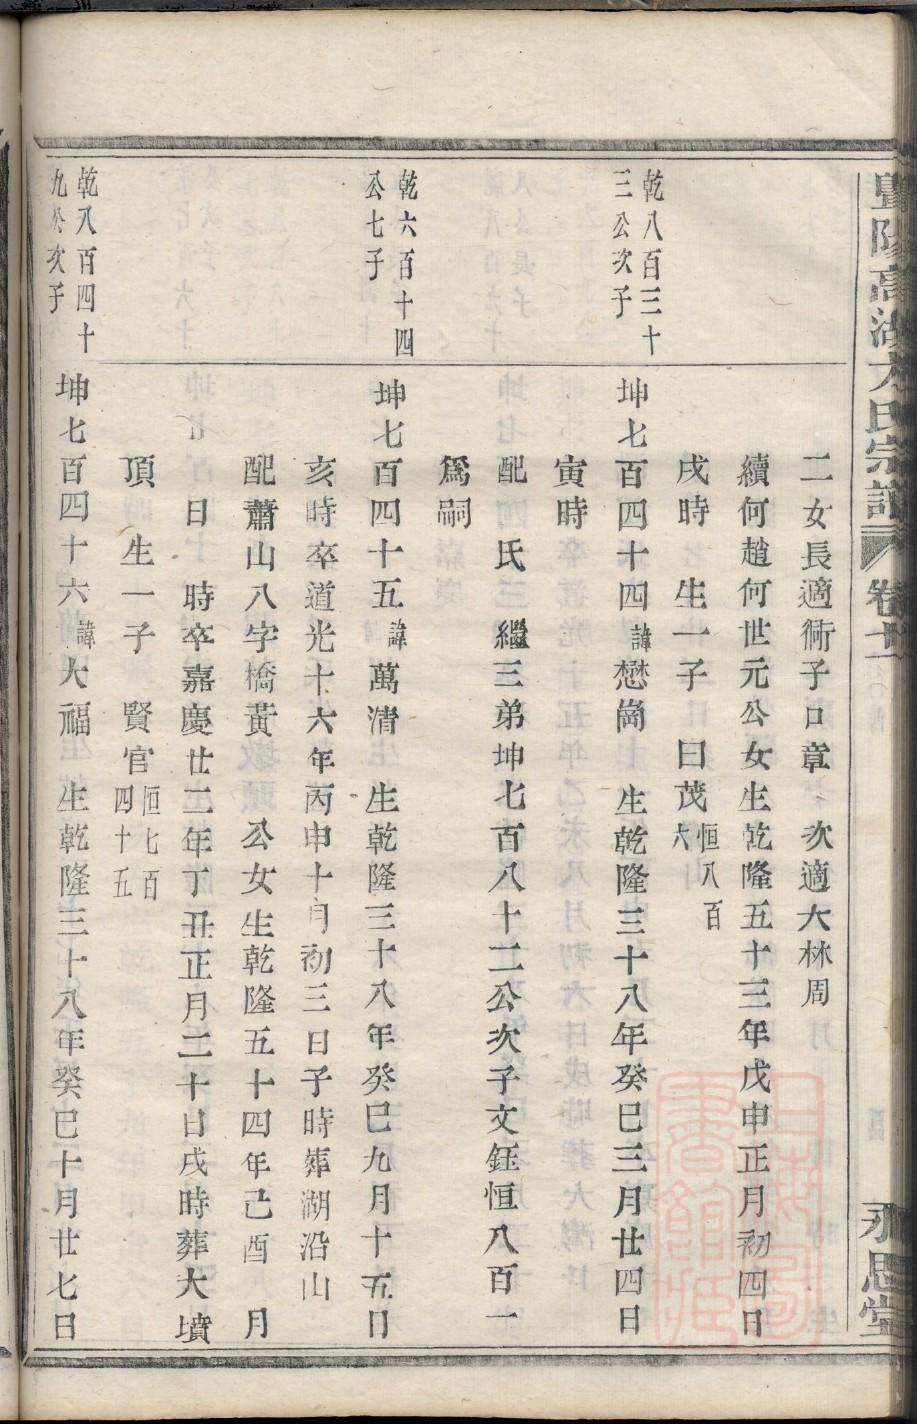 暨陽高湖方氏宗譜
卷十二
永思堂
二女長適衕子口章次適大林周
續何趙何世元公女生乾隆五十三年戊申正月初四日
戌時 生一子 曰茂恒八百六
乾八百三十三公次子
坤七百四十四諱懋崗 生乾隆三十八年癸巳三月廿四日
寅時
配 氏 繼三弟坤七百八十二公次子文鈺恒八百一
爲嗣
乾六百十四公七子
坤七百四十五諱萬清 生乾隆三十八年癸巳九月十五日
亥時卒道光十六年丙申十月初三日子時葬湖沿山
配蕭山八字橋黃 公女生乾隆五十四年己酉 月
日 時卒嘉慶廿二年丁丑正月二十日戌時葬大墳
頂 生一子 賢官恒七百四十五
乾八百四十九公次子
坤七百四十六諱大福 生乾隆三十八年癸巳十月廿七日